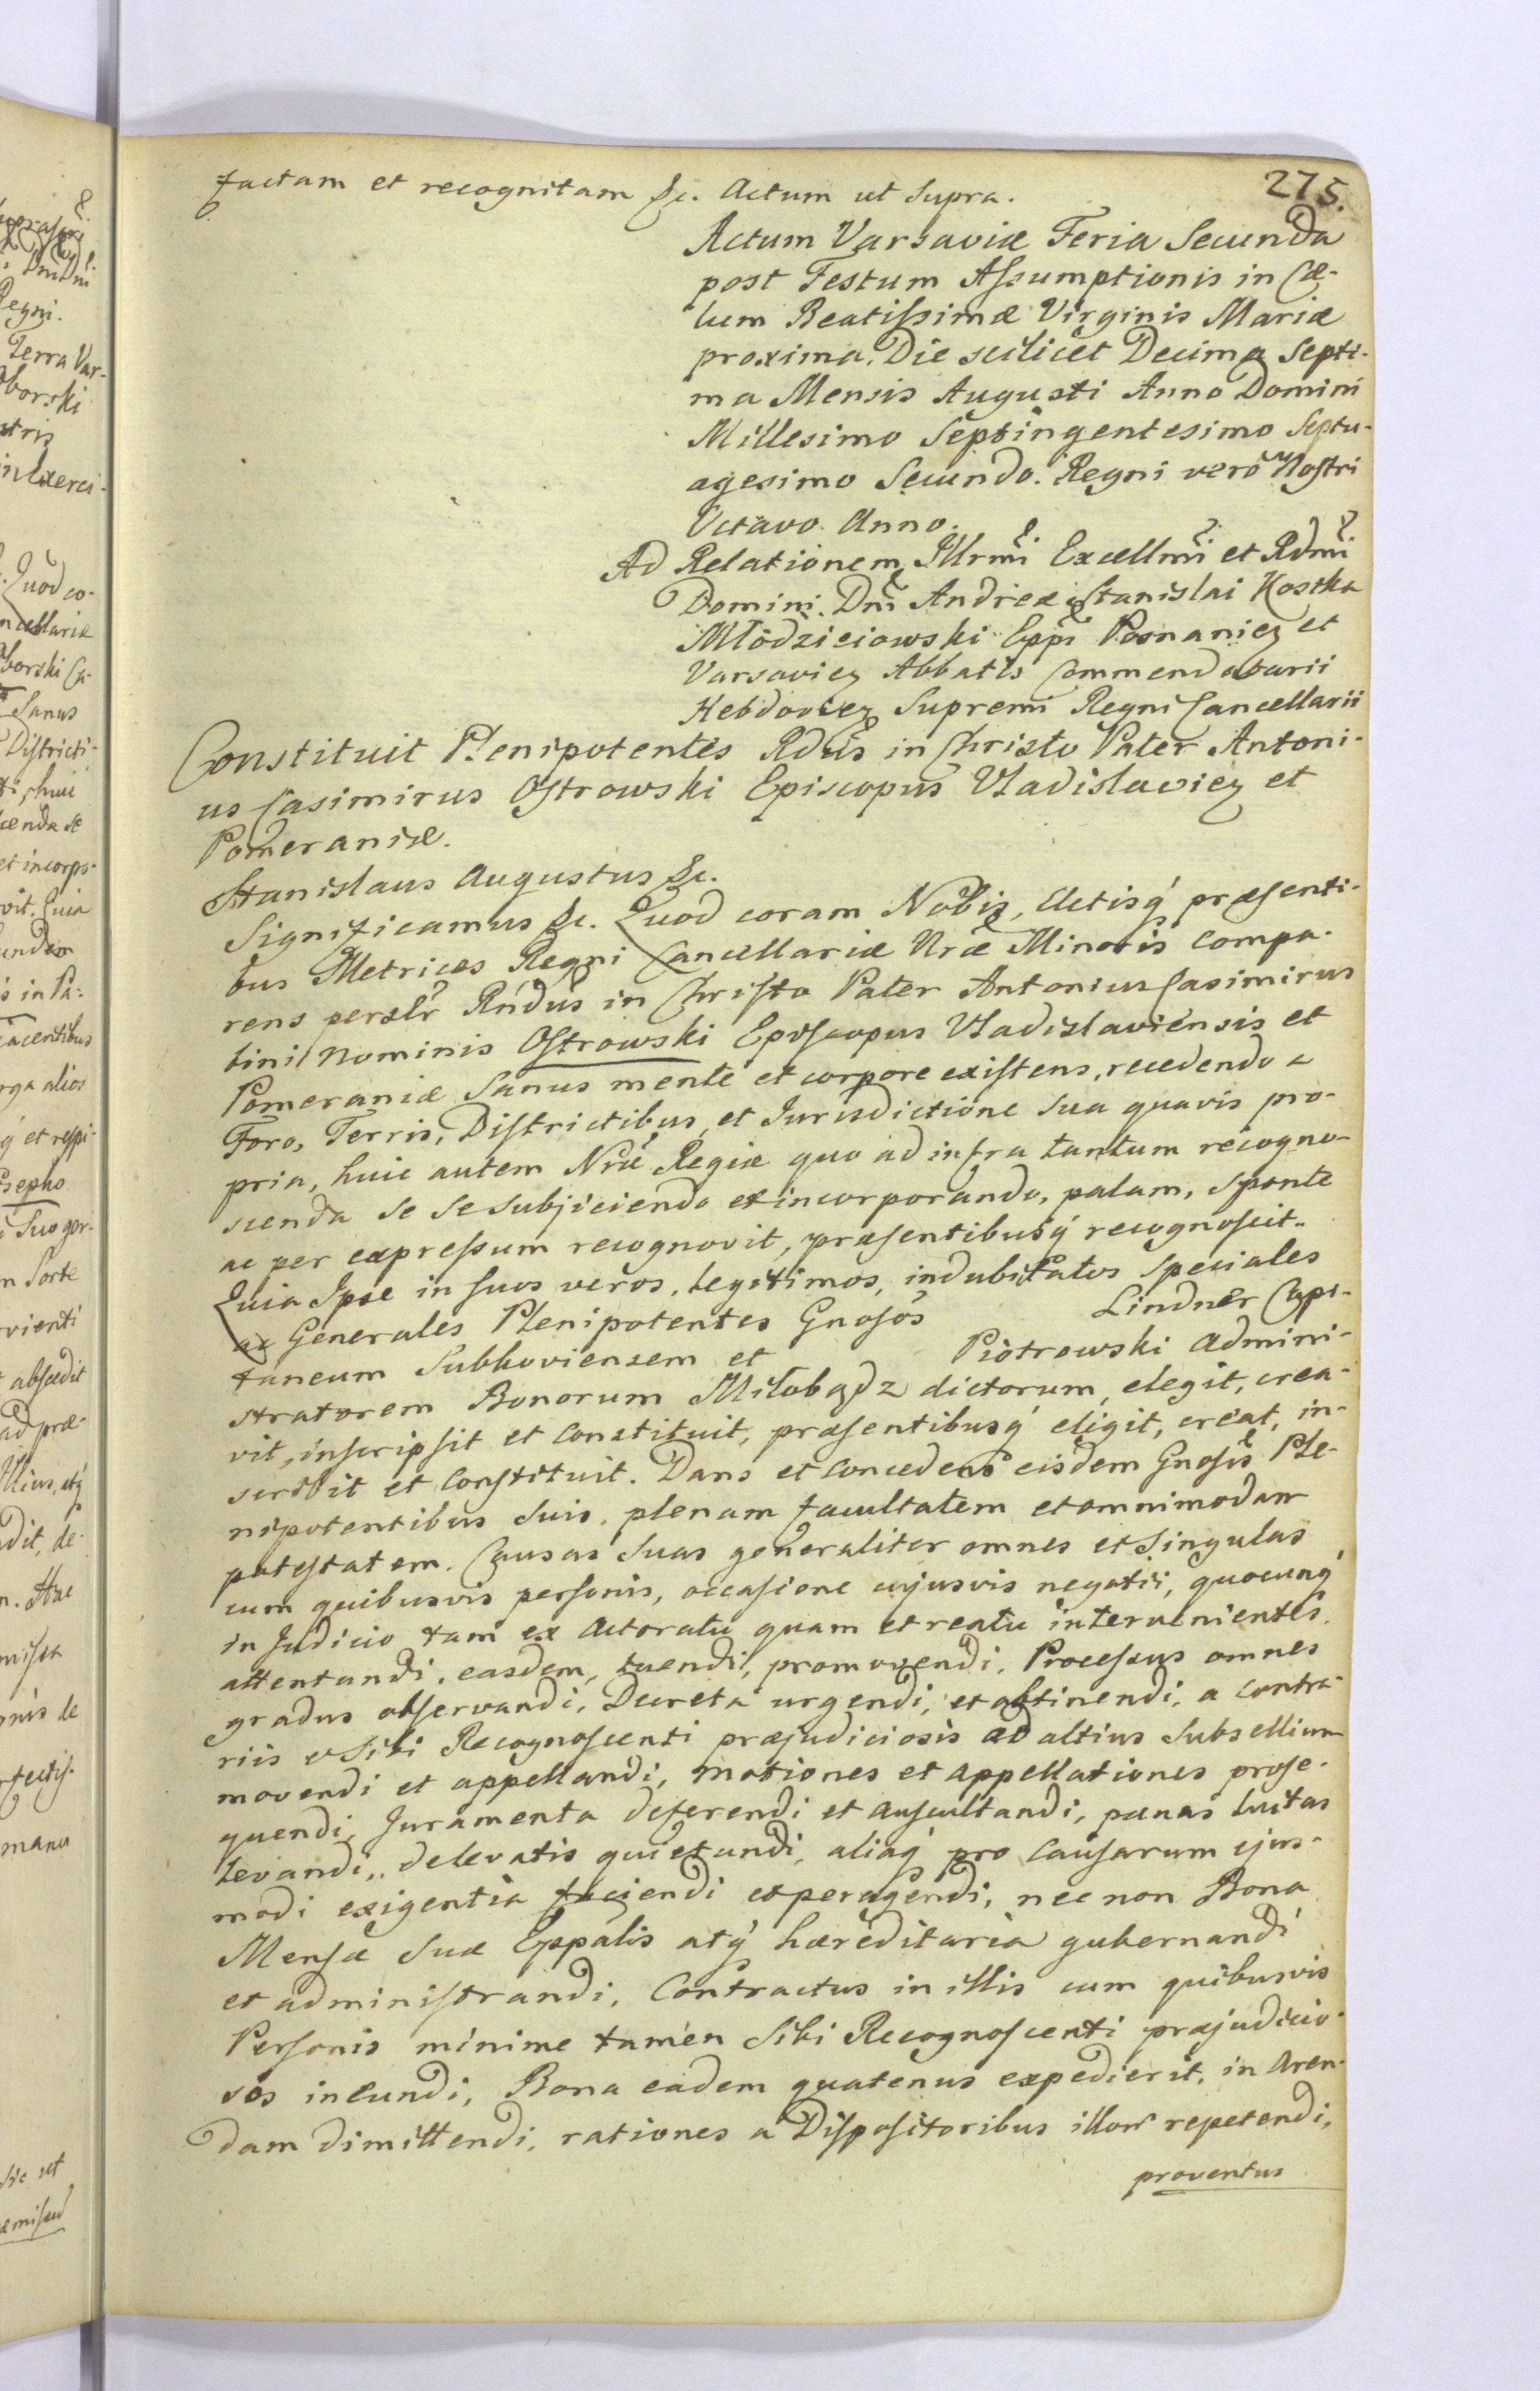 275.
factam et recognitam &c. Actum ut supra.
Actum Varsaviæ Feria Secunda
post Festum Assumptionis in Cæ-
lum Beatissimæ Virginis Mariæ
proxima. Die scilicet Decima Septi-
ma Mensis Augusti Anno Domini
Millesimo Septingentesimo Septu-
agesimo Secundo. Regni verò Nostri
Octavo Anno.
Ad Relationem Illrmi Excellmi et Rdmi
Domini Dni Andreæ Stanislai Kostka
Młodzieiowski Eppi Posnanien et
Varsavien Abbatis Commendatarii
Hebdovien Supremi Regni Cancellarii
Constituit Plenipotentes Rdus in Christo Pater Antoni-
us Casimirus Ostrowski Episcopus Vladislavien et
Pomeraniæ.
Stanislaus Augustus &c.
Significamus &c. Quod coram Nobis, Actisq præsenti-
bus Metrices Regni Cancellariæ Nræ Minoris compa-
rens perslr Rndus in Christo Pater Antonius Casimirus
bini Nominis Ostrowski Episcopus Vladislaviensis et
Pomeraniæ Sanus mente et corpore existens, recedendo a
Foro, Terris, Districtibus, et Jurisdictione sua quavis pro-
pria, huic autem Nræ Regiæ quo ad infra tantum recogno-
scenda se se subjiciendo et incorporando, palam, sponte
ac per expressum recognovit, præsentibusq recognoscit..
Quia Ipse in suos veros, legitimos, indubitatos speciales
ac Generales Plenipotentes Gnosos Lindner Capi-
taneum Subkoviensem et Piotrowski Admini-
stratorem Bonorum Miłobądz dictorum, elegit, crea-
vit, inscripsit et constituit, præsentibusq eligit, creat, in-
scribit et constituit. Dans et concedens eisdem Gnosis Ple-
nipotentibus suis, plenam facultatem et omnimodam
potestatem. Causas suas generaliter omnes et singulas
cum quibusvis personis, occasione cujusvis negotii, quocunq
in Judicio tam ex Actoratu quam et reatu intervenientes.
attentandi, easdem, tuendi, promovendi, Processus omnes
gradus observandi, Decreta urgendi, et obtinendi, a contra-
riis & sibi Recognoscenti præjudiciosis ad altius Subsellium
movendi et appellandi, motiones et appellationes prose-
quendi, Juramenta deferendi et auscultandi, pænas luitas
levandi, de levatis quietandi, aliaq pro causarum ejus-
modi exigentia faciendi et peragendi, nec non Bona
Mensæ suæ Eppalis atq hæreditaria gubernandi
et administrandi, Contractus in illis cum quibusvis
Personis minime tamen sibi Recognoscenti præjudicio-
sos ineundi, Bona eadem quatenus expedierit, in Aren-
dam dimittendi, rationes a Dispositoribus illorr repetendi,
proventus